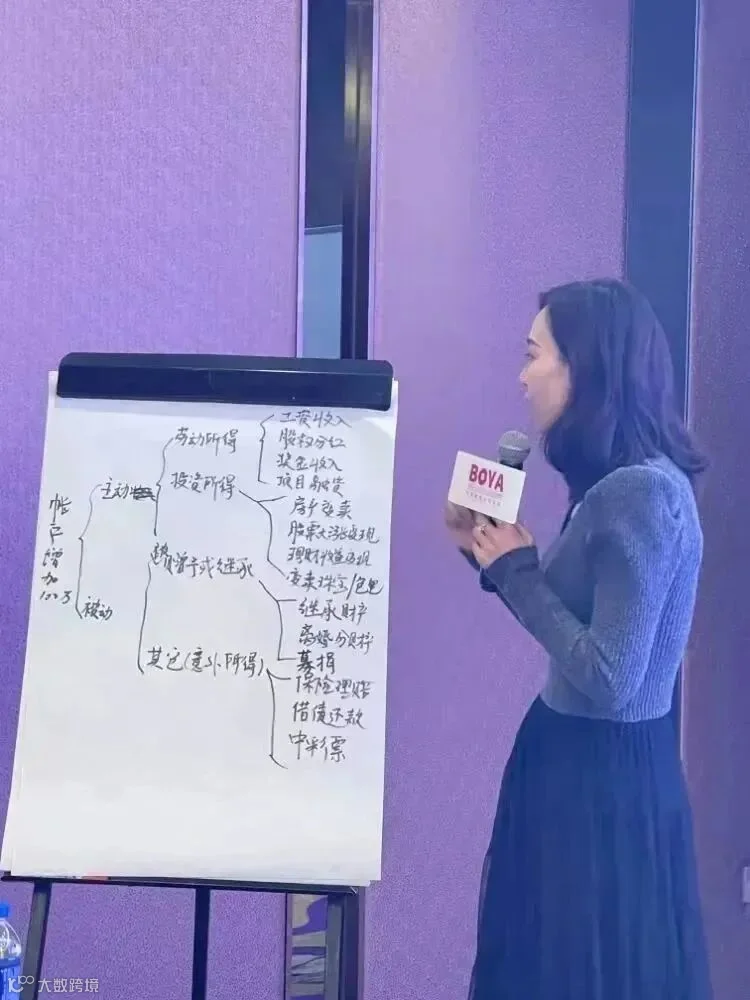 帐户增加100万
主动
被动
劳动所得
投资所得
赠予或继承
其它(意外所得)
工资收入
股权分红
奖金收入
项目
房产变卖
股票大涨变现
理财收益变现
变卖珠宝/包包
继承财产
离婚分财产
募捐
保险理赔
借债还款
中彩票
BOYA
大数跨境